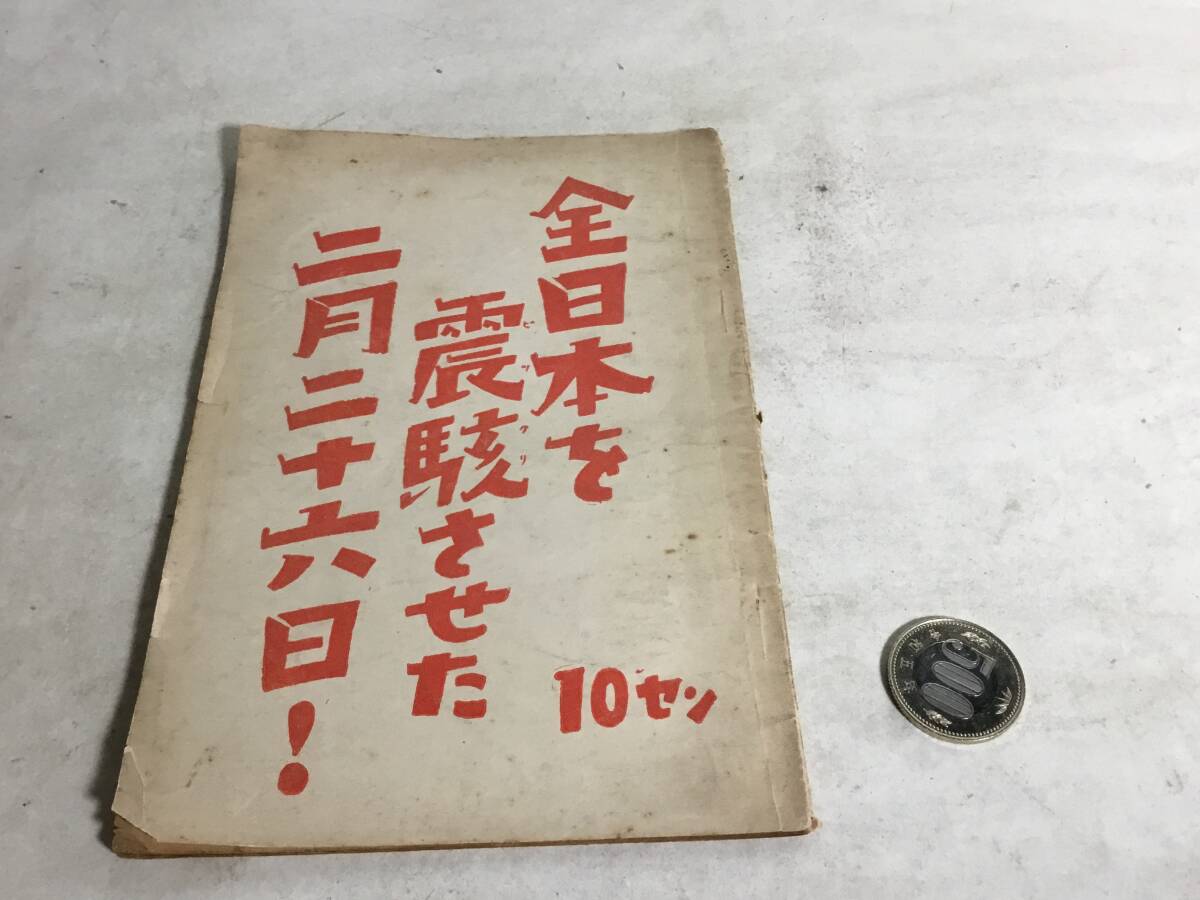 全日本を
震駭させた
ビックリ
二月二十六日!
10セン
500